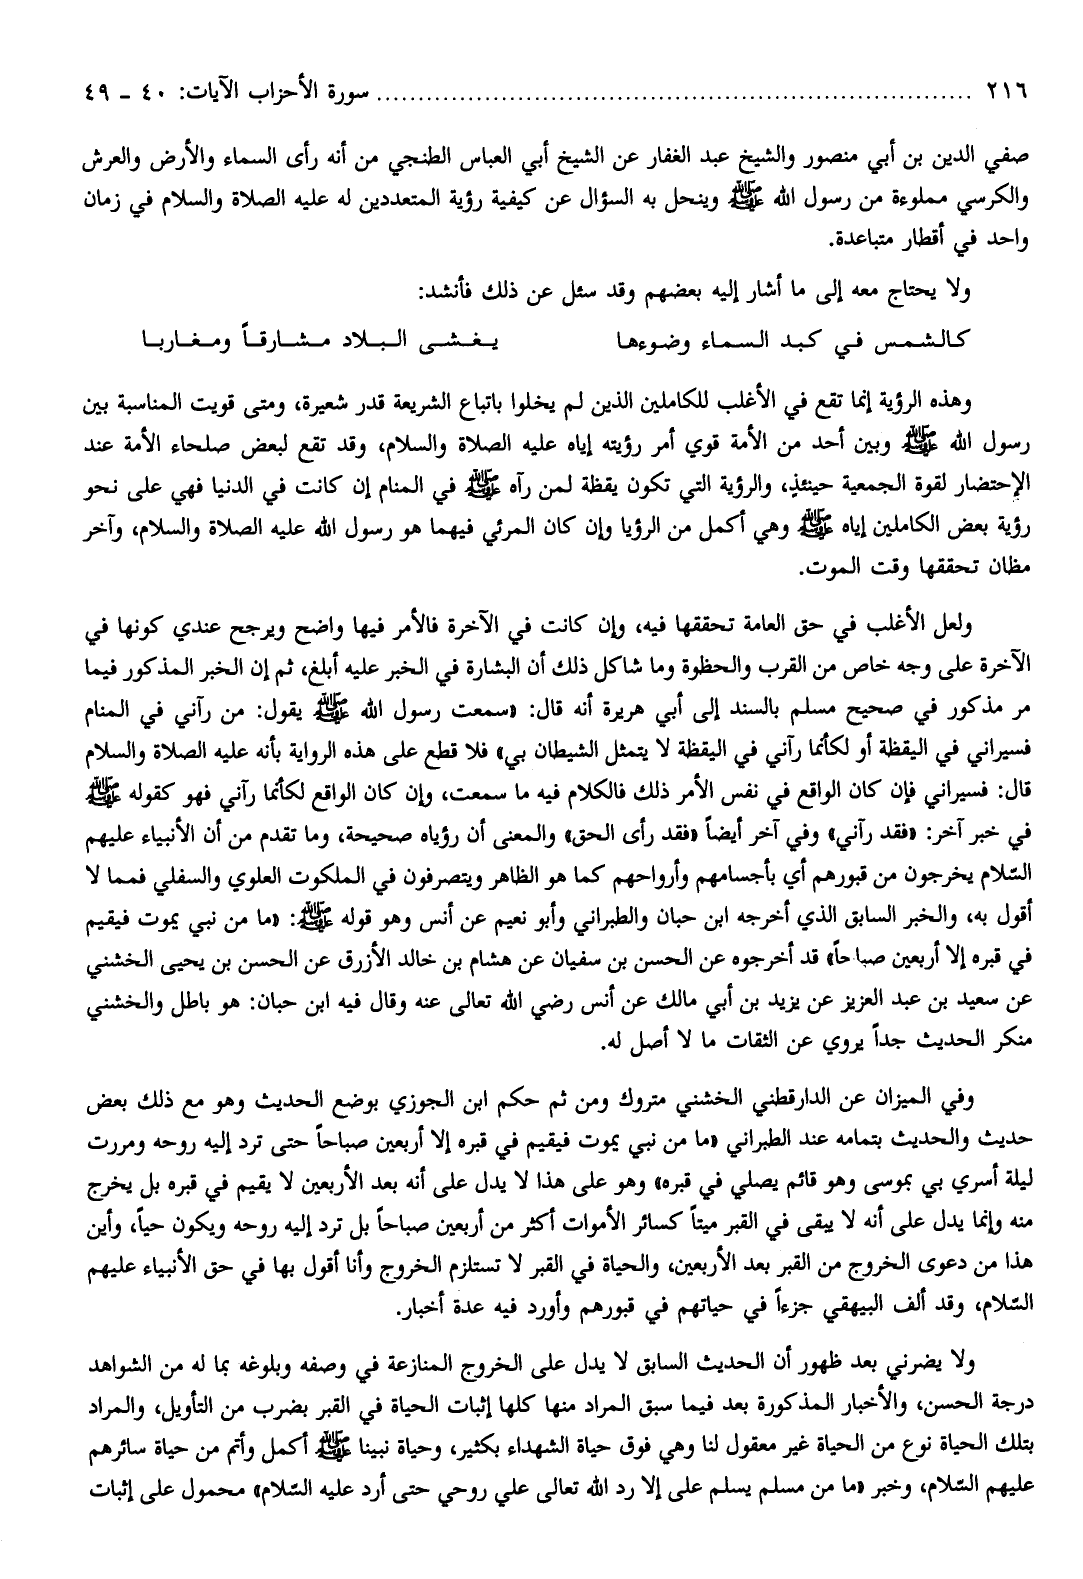 ٢١٦ ........................................................................ سورة الأحزاب الآيات: ٤٠ ـ ٤٩
صفي الدين بن أبي منصور والشيخ عبد الغفار عن الشيخ أبي العباس الطنجي من أنه رأى السماء والأرض والعرش
والكرسي مملوءة من رسول الله ﷺ وينحل به السؤال عن كيفية رؤية المتعددين له عليه الصلاة والسلام في زمان
واحد في أقطار متباعدة.
ولا يحتاج معه إلى ما أشار إليه بعضهم وقد سئل عن ذلك فأنشد:
كالشمس في كبد السماء وضوءها يغشى البلاد مشارقاً ومغاربا
وهذه الرؤية إنما تقع في الأغلب للكاملين الذين لم يخلوا باتباع الشريعة قدر شعيرة، ومتى قويت المناسبة بين
رسول الله ﷺ وبين أحد من الأمة قوي أمر رؤيته إياه عليه الصلاة والسلام، وقد تقع لبعض صلحاء الأمة عند
الإحتضار لقوة الجمعية حينئذٍ، والرؤية التي تكون يقظة لمن رآه ﷺ في المنام إن كانت في الدنيا فهي على نحو
رؤية بعض الكاملين إياه ﷺ وهي أكمل من الرؤيا وإن كان المرئي فيهما هو رسول الله عليه الصلاة والسلام، وآخر
مظان تحققها وقت الموت.
ولعل الأغلب في حق العامة تحققها فيه، وإن كانت في الآخرة فالأمر فيها واضح ويرجح عندي كونها في
الآخرة على وجه خاص من القرب والحظوة وما شاكل ذلك أن البشارة في الخبر عليه أبلغ، ثم إن الخبر المذكور فيما
مر مذكور في صحيح مسلم بالسند إلى أبي هريرة أنه قال: «سمعت رسول الله ﷺ يقول: من رآني في المنام
فسيراني في اليقظة أو لكأنما رآني في اليقظة لا يتمثل الشيطان بي» فلا قطع على هذه الرواية بأنه عليه الصلاة والسلام
قال: فسيراني فإن كان الواقع في نفس الأمر ذلك فالكلام فيه ما سمعت، وإن كان الواقع لكأنما رآني فهو كقوله ﷺ
في خبر آخر: «فقد رآني» وفي آخر أيضاً «فقد رأى الحق» والمعنى أن رؤياه صحيحة، وما تقدم من أن الأنبياء عليهم
السّلام يخرجون من قبورهم أي بأجسامهم وأرواحهم كما هو الظاهر ويتصرفون في الملكوت العلوي والسفلي فمما لا
أقول به، والخبر السابق الذي أخرجه ابن حبان والطبراني وأبو نعيم عن أنس وهو قوله ﷺ: «ما من نبي يموت فيقيم
في قبره إلا أربعين صباحاً» قد أخرجوه عن الحسن بن سفيان عن هشام بن خالد الأزرق عن الحسن بن يحيى الخشني
عن سعيد بن عبد العزيز عن يزيد بن أبي مالك عن أنس رضي الله تعالى عنه وقال فيه ابن حبان: هو باطل والخشني
منكر الحديث جداً يروي عن الثقات ما لا أصل له.
وفي الميزان عن الدارقطني الخشني متروك ومن ثم حكم ابن الجوزي بوضع الحديث وهو مع ذلك بعض
حديث والحديث بتمامه عند الطبراني «ما من نبي يموت فيقيم في قبره إلا أربعين صباحاً حتى ترد إليه روحه ومررت
ليلة أسري بي بموسى وهو قائم يصلي في قبره» وهو على هذا لا يدل على أنه بعد الأربعين لا يقيم في قبره بل يخرج
منه وإنما يدل على أنه لا يبقى في القبر ميتاً كسائر الأموات أكثر من أربعين صباحاً بل ترد إليه روحه ويكون حياً، وأين
هذا من دعوى الخروج من القبر بعد الأربعين، والحياة في القبر لا تستلزم الخروج وأنا أقول بها في حق الأنبياء عليهم
السّلام، وقد ألف البيهقي جزءاً في حياتهم في قبورهم وأورد فيه عدة أخبار.
ولا يضرني بعد ظهور أن الحديث السابق لا يدل على الخروج المنازعة في وصفه وبلوغه بما له من الشواهد
درجة الحسن، والأخبار المذكورة بعد فيما سبق المراد منها كلها إثبات الحياة في القبر بضرب من التأويل، والمراد
بتلك الحياة نوع من الحياة غير معقول لنا وهي فوق حياة الشهداء بكثير، وحياة نبينا ﷺ أكمل وأتم من حياة سائرهم
عليهم السّلام، وخبر «ما من مسلم يسلم على إلا رد الله تعالى علي روحي حتى أرد عليه السّلام» محمول على إثبات